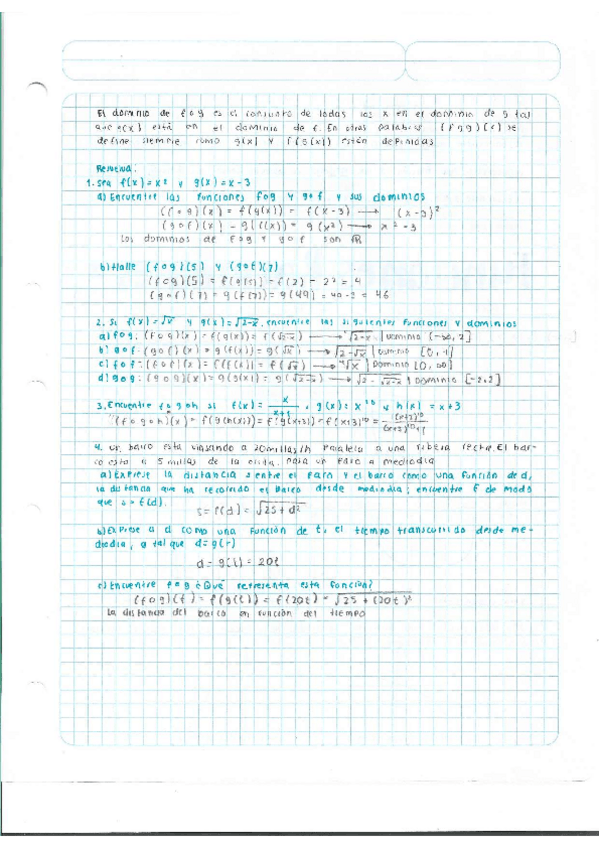 El dominio de f o g es el conjunto de todas las x en el dominio de g tal
que g(x) está en el dominio de f. En otras palabras (f o g)(x) se
define siempre como g(x) y f(g(x)) están definidas
Resuelva:
1. sea f(x) = x² y g(x) = x-3
a) Encuentre las funciones fog y gof y sus dominios
(f o g)(x) = f(g(x)) = f(x-3) → (x-3)²
(g o f)(x) = g(f(x)) = g(x²) → x²-3
Los dominios de fog y gof son ℝ
b) Halle (f o g)(5) y (g o f)(7)
(f o g)(5) = f(g(5)) = f(2) = 2² = 4
(g o f)(7) = g(f(7)) = g(49) = 49-3 = 46
2. Si f(x) = √x y g(x) = √2-x. encuentre las siguientes funciones y dominios
a) fog: (f o g)(x) = f(g(x)) = f(√2-x) → ⁴√2-x | Dominio (-∞, 2]
b) gof: (g o f)(x) = g(f(x)) = g(√x) → √2-√x | Dominio [0, 4]
c) fof: (f o f)(x) = f(f(x)) = f(√x) → ⁴√x | Dominio [0, ∞)
d) gog: (g o g)(x) = g(g(x)) = g(√2-x) → √2-√2-x | Dominio [-2,2]
3. Encuentre fogoh si f(x) = x/x+1, g(x) = x¹⁰ y h(x) = x+3
(f o g o h)(x) = f(g(h(x))) = f(g(x+3)) = f(x+3)¹⁰ = (x+3)¹⁰/(x+3)¹⁰+1
4. un barco esta viajando a 20 millas/h paralela a una ribera recta. El bar-
co esta a 5 millas de la orilla. pasa un faro a mediodia
a) Exprese la distancia s entre el faro y el barco como una función de d,
la distancia que ha recorrido el barco desde mediodia; encuentre f de modo
que s = f(d).
s = f(d) = √25 + d²
b) Exprese a d como una función de t, el tiempo transcurrido desde me-
diodia, g tal que d = g(t)
d = g(t) = 20t
c) Encuentre fog ¿Qué representa esta función?
(f o g)(t) = f(g(t)) = f(20t) = √25 + (20t)²
La distancia del barco en función del tiempo